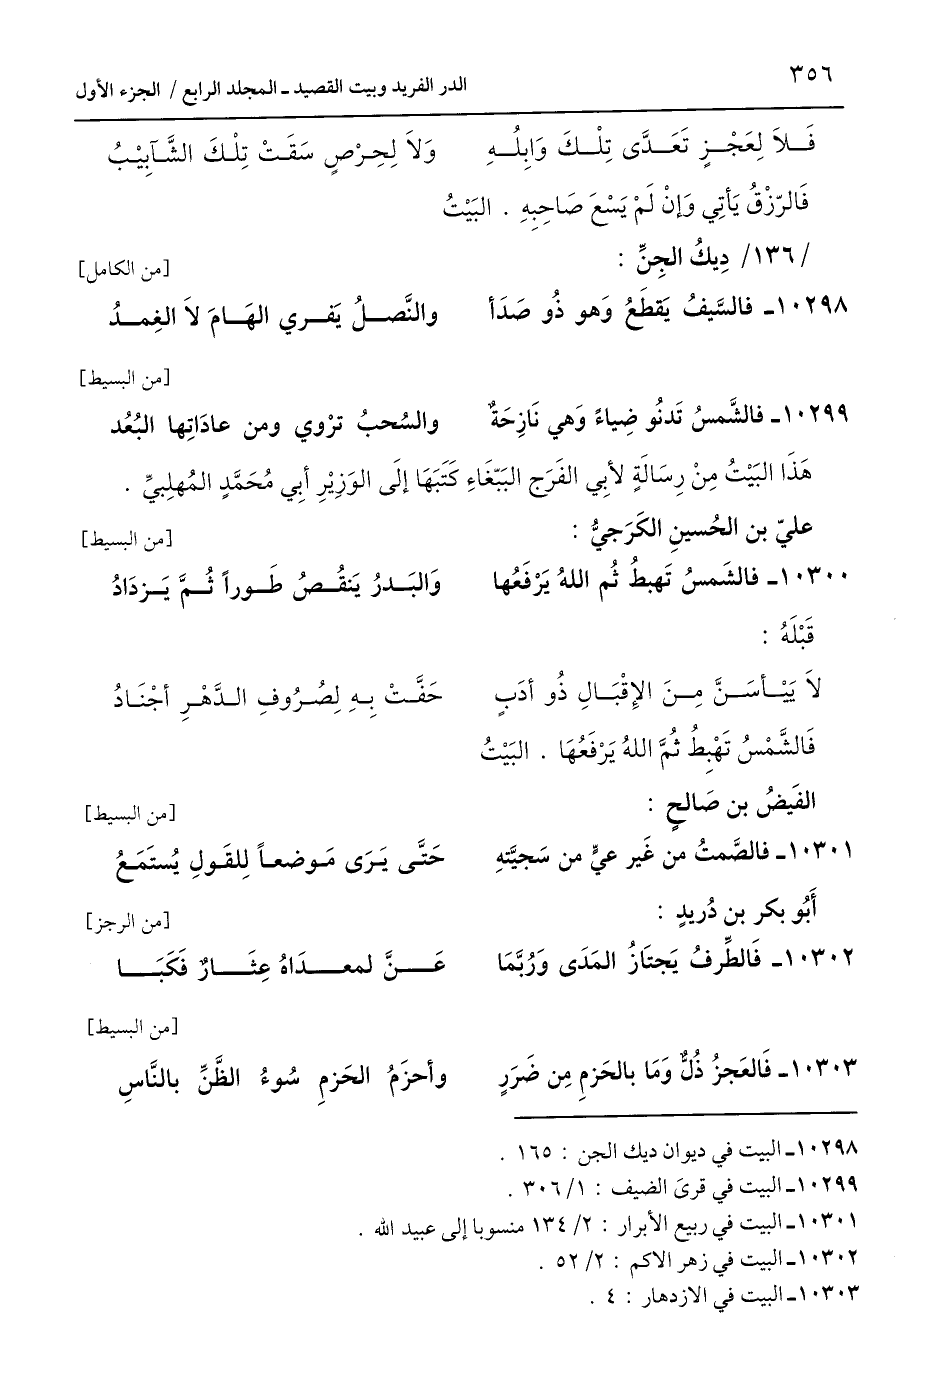 ٣٥٦ الدر الفريد وبيت القصيد ـ المجلد الرابع / الجزء الأول
فَـلاَ لِعَجْـزٍ تَعَـدَّى تِلْـكَ وَابِلُـهِ وَلاَ لِحِرْصٍ سَقَتْ تِلْكَ الشَّآبِيْبُ
فَالرِّزْقُ يَأتِي وَإنْ لَمْ يَسْعَ صَاحِبِهِ . البَيْتُ
/١٣٦/ دِيكُ الجِنِّ : [من الكامل]
١٠٢٩٨ـ فالسَّيفُ يَقطَعُ وَهو ذُو صَدَأ والنَّصلُ يَفـري الهَـامَ لاَ الغِمـدُ
[من البسيط]
١٠٢٩٩ـ فالشَّمسُ تَدنُو ضِياءً وَهي نَازِحَةٌ والسُحبُ تزْوي ومن عادَاتِها البُعُد
هَذَا البَيْتُ مِنْ رِسَالَةٍ لأبِي الفَرَج البَبْغَاءِ كَتَبَهَا إلَى الوَزِيْرِ أبِي مُحَمَّدٍ المُهلبِيِّ .
عليّ بن الحُسينِ الكَرَجيُّ : [من البسيط]
١٠٣٠٠ـ فالشَمسُ تَهبِطُ ثُم اللهُ يَرْفَعُها وَالبَـدرُ يَنقُـصُ طَـوراً ثُـمَّ يَـزدَادُ
قَبْلَهُ :
لاَ يَيْـأسَـنَّ مِـنَ الإقْبَـالِ ذُو أدَبٍ حَفَّـتْ بِـهِ لِصُـرُوفِ الـدَّهْـرِ أجْنَـادُ
فَالشَّمْسُ تَهْبِطُ ثُمَّ اللهُ يَرْفَعُهَا . البَيْتُ
الفَيضُ بن صَالحٍ : [من البسيط]
١٠٣٠١ـ فالصَّمتُ من غَير عيٍّ من سَجيَّتهِ حَتَّى يَرَى مَوضعاً لِلقَولِ يُستَمَعُ
أَبُو بكر بن دُريدٍ : [من الرجز]
١٠٣٠٢ـ فَالطِّرفُ يَجتَازُ المَدَى وَرُبَّمَا عَــنَّ لمعــدَاهُ عِثَــارٌ فَكَبَــا
[من البسيط]
١٠٣٠٣ـ فَالعَجزُ ذُلٌّ وَمَا بالحَزمِ مِن ضَرَرٍ وأحزَمُ الحَزمِ سُوءُ الظَّنِّ بالنَّاسِ
١٠٢٩٨ـ البيت في ديوان ديك الجن : ١٦٥ .
١٠٢٩٩ـ البيت في قرىَ الضيف : ١/ ٣٠٦ .
١٠٣٠١ـ البيت في ربيع الأبرار : ٢/ ١٣٤ منسوبا إلى عبيد الله .
١٠٣٠٢ـ البيت في زهر الاكم : ٢/ ٥٢ .
١٠٣٠٣ـ البيت في الازدهار : ٤ .